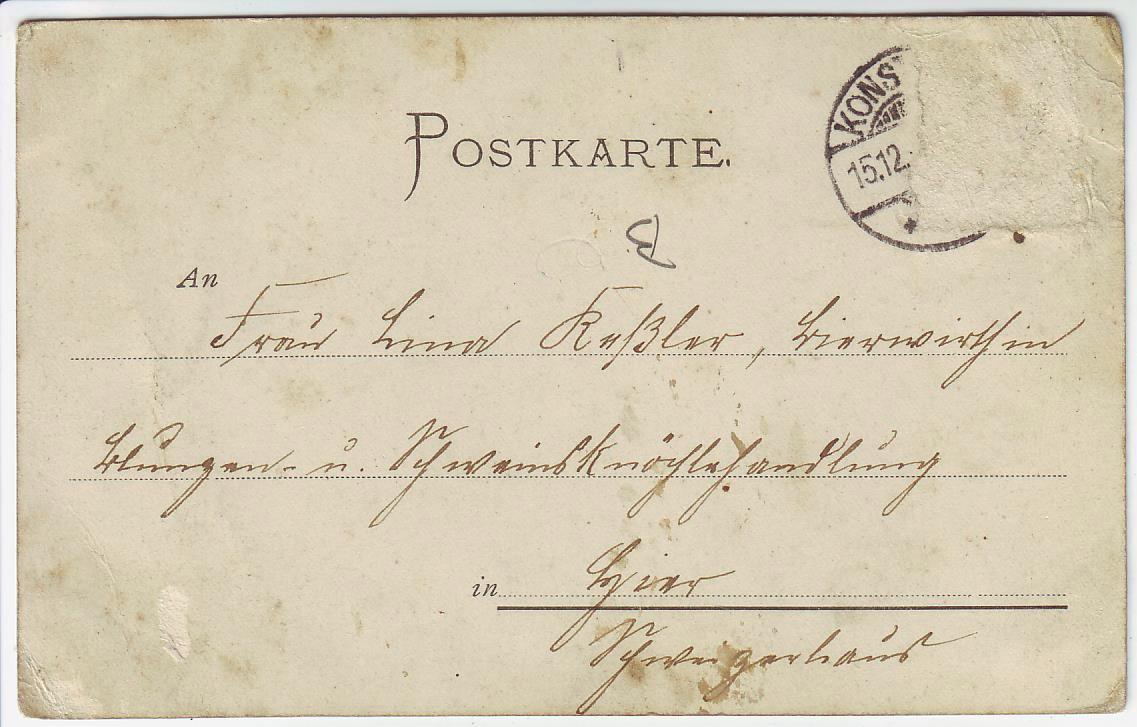 POSTKARTE.
KONS
15.12.
*
An
Frau Lina Keßler, Bierwirthin
Blunzen- u. Schweinsknöchlehandlung
in Hier
Schweizerhaus